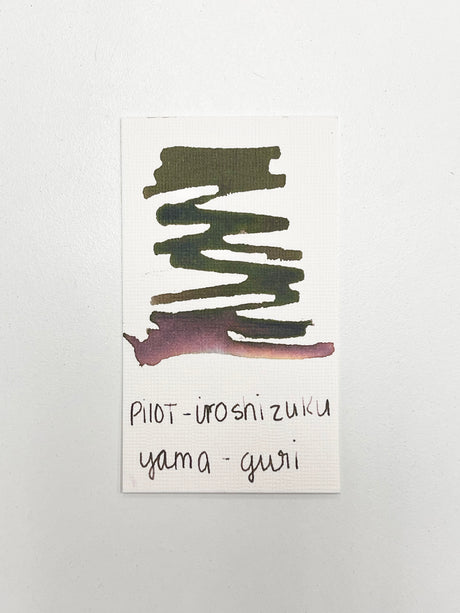 PILOT-iroshizuku
yama-guri